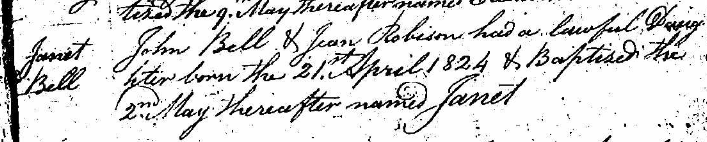 tized the 9. May thereafter named
Janet John Bell & Jean Robison had a lawful Daug
Bell hter born the 21st April 1824 & Baptized the
2nd May thereafter named Janet